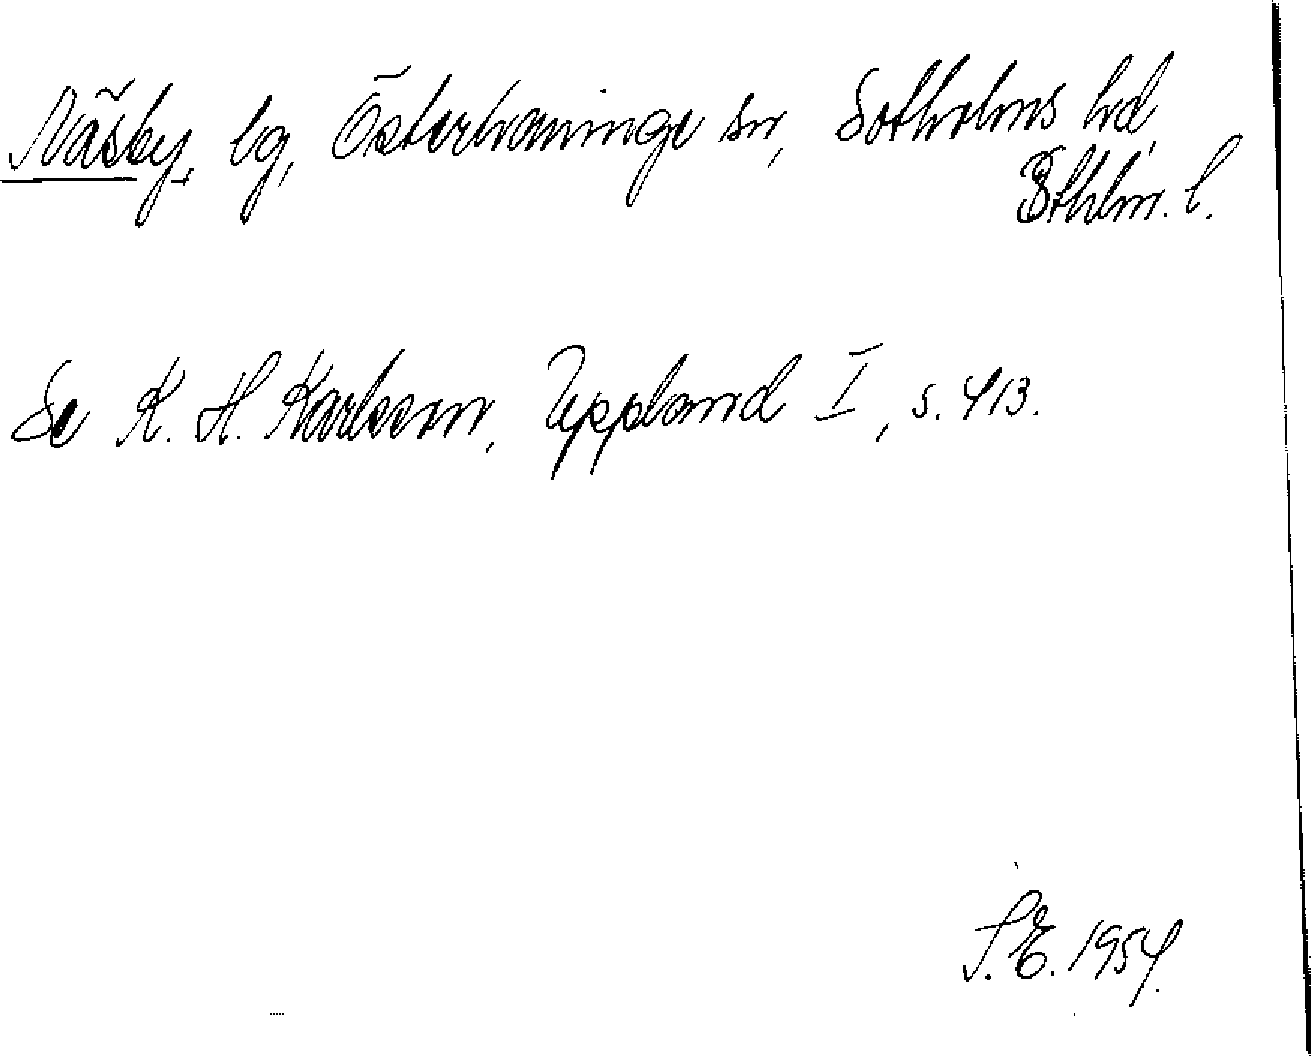 Näsby, by, Österhaninge sn, Sotholms hd,
Sthlm. l.
Se K. H. Karlsson, Uppland I, s. 413.
S. E. 1954.